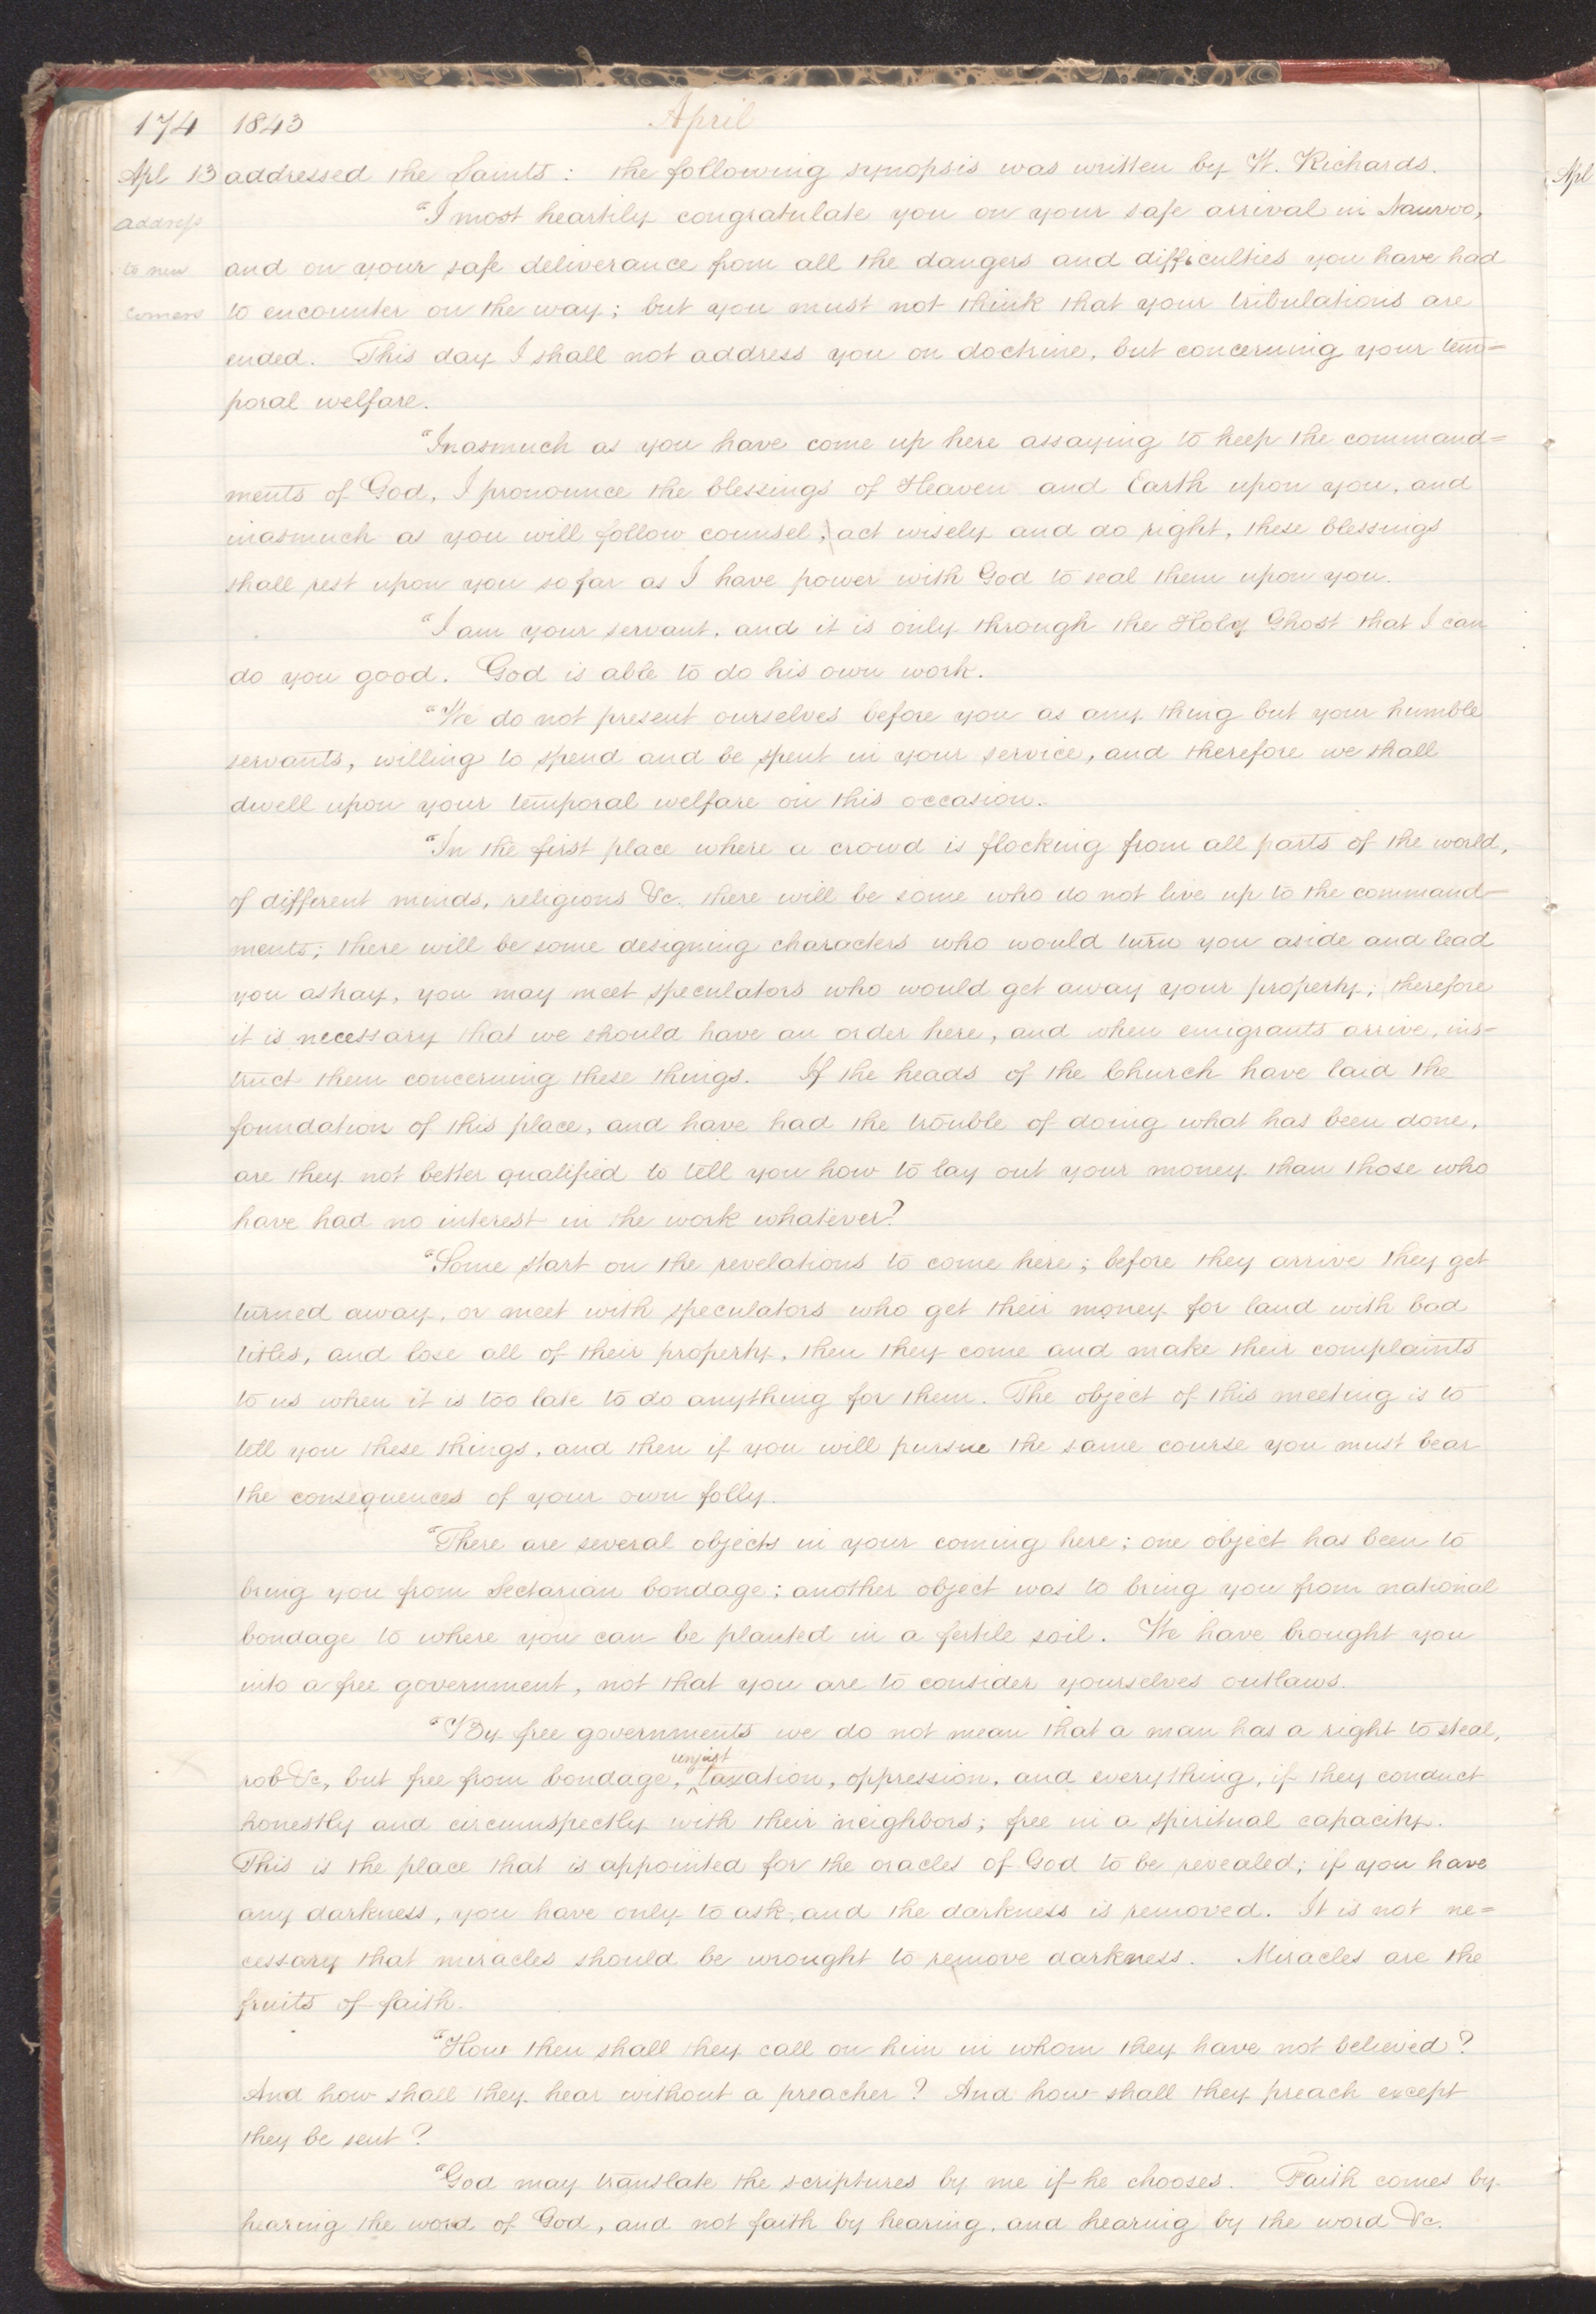 174 1843 April
Apl 13 addressed the Saints: the following synopsis was written by W. Richards.
address "I most heartily congratulate you on your safe arrival in Nauvoo,
to new and on your safe deliverance from all the dangers and difficulties you have had
comers to encounter on the way; but you must not think that your tribulations are
ended. This day I shall not address you on doctrine, but concerning your tem=
poral welfare.
"Inasmuch as you have come up here assaying to keep the command=
ments of God, I pronounce the blessings of Heaven and Earth upon you, and
inasmuch as you will follow counsel, act wisely and do right, these blessings
shall rest upon you so far as I have power with God to seal them upon you.
"I am your servant, and it is only through the Holy Ghost that I can
do you good. God is able to do his own work.
"We do not present ourselves before you as any thing but your humble
servants, willing to spend and be spent in your service, and therefore we shall
dwell upon your temporal welfare on this occasion.
"In the first place where a crowd is flocking from all parts of the world,
of different minds, religions &c. there will be some who do not live up to the command=
ments; there will be some designing characters who would turn you aside and lead
you astray, you may meet speculators who would get away your property; therefore
it is necessary that we should have an order here, and when emigrants arrive, ins=
truct them concerning these things. If the heads of the Church have laid the
foundation of this place, and have had the trouble of doing what has been done,
are they not better qualified to tell you how to lay out your money than those who
have had no interest in the work whatever?
"Some start on the revelations to come here; before they arrive they get
turned away, or meet with speculators who get their money for land with bad
titles, and lose all of their property, then they come and make their complaints
to us when it is too late to do anything for them. The object of this meeting is to
tell you these things, and then if you will pursue the same course you must bear
the consequences of your own folly.
"There are several objects in your coming here; one object has been to
bring you from Sectarian bondage; another object was to bring you from national
bondage to where you can be planted in a fertile soil. We have brought you
into a free government, not that you are to consider yourselves outlaws.
"By free governments we do not mean that a man has a right to steal,
rob &c., but free from bondage, unjust taxation, oppression, and everything, if they conduct
honestly and circumspectly with their neighbors; free in a spiritual capacity.
This is the place that is appointed for the oracles of God to be revealed; if you have
any darkness, you have only to ask, and the darkness is removed. It is not ne=
cessary that miracles should be wrought to remove darkness. Miracles are the
fruits of faith.
"How then shall they call on him in whom they have not believed?
And how shall they hear without a preacher? And how shall they preach except
they be sent?
"God may translate the scriptures by me if he chooses. Faith comes by
hearing the word of God, and not faith by hearing, and hearing by the word &c.
Apl